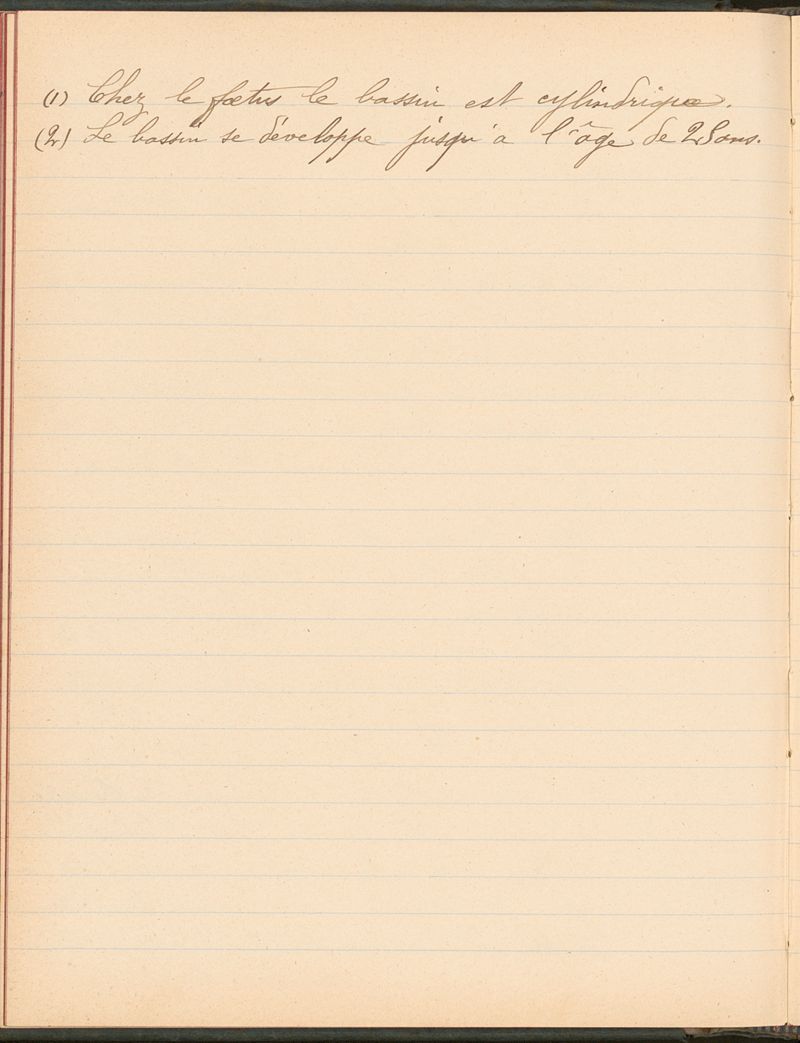 (1) Chez le fœtus le bassin est cylindrique.
(2) Le bassin se développe jusqu'a l'âge de 25 ans.